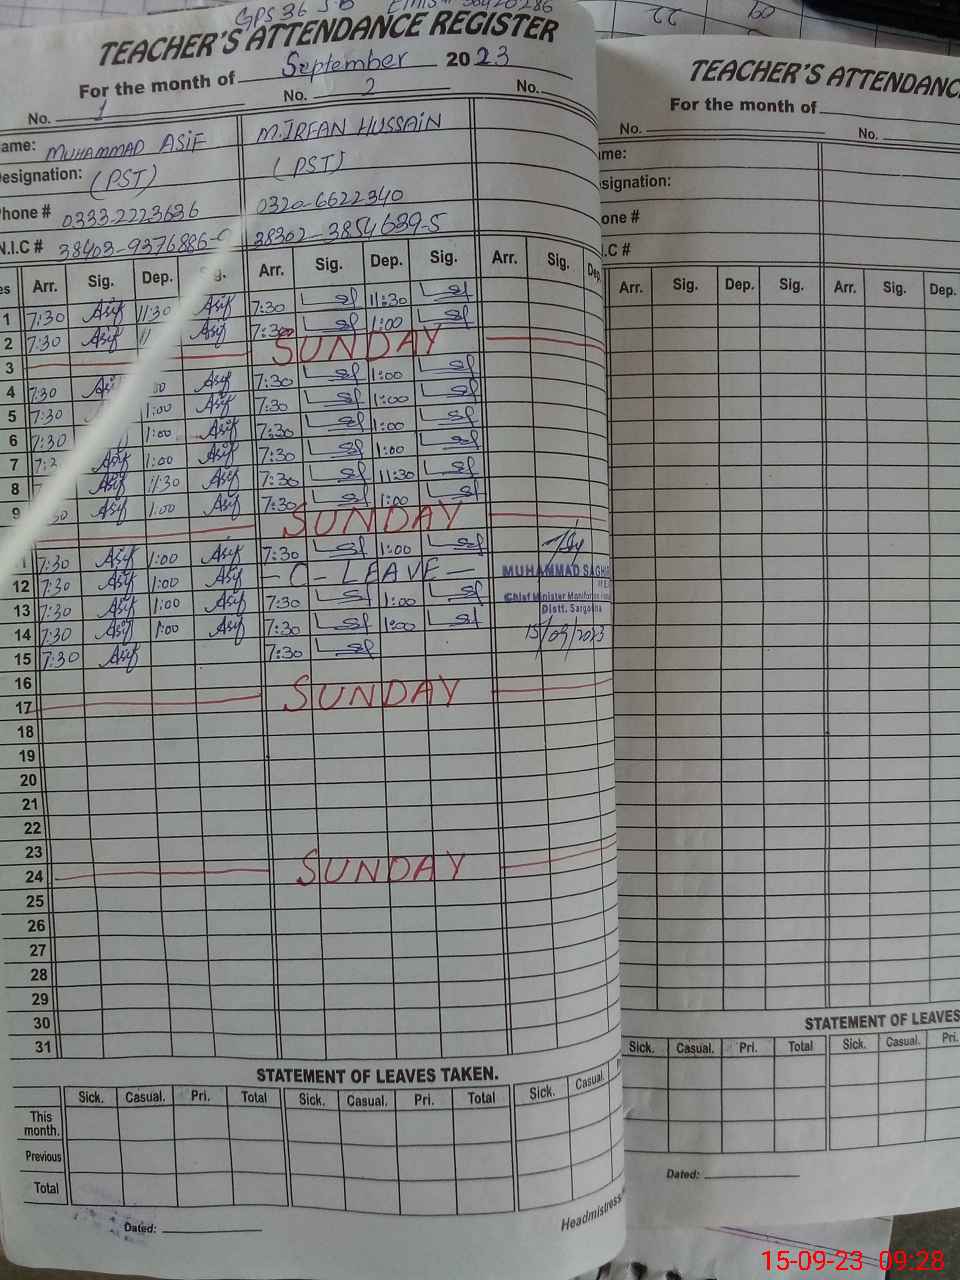 GPS 36 S.B
TEACHER'S ATTENDANCE REGISTER
For the month of September 2023
No. 1 No. 2 No.
Name: MUHAMMAD ASIF M.IRFAN HUSSAIN
Designation: (PST) (PST)
Phone # 0333-2223636 0320-6622340
N.I.C # 38403-9376886- 38302-3854639-5
Arr. Sig. Dep. Sig. Arr. Sig. Dep. Sig. Arr. Sig. Dep.
1 7:30 Asif 11:30 Asif 7:30 11:30
2 7:30 Asif Asif 7:30 1:00
3 SUNDAY
4 7:30 Asif 7:30 1:00
5 7:30 1:00 Asif 7:30 1:00
6 7:30 1:00 Asif 7:30 1:00
7 Asif 1:00 Asif 7:30 1:00
8 Asif 11:30 Asif 7:30 11:30
9 Asif 1:00 Asif 7:30 1:00
SUNDAY
7:30 Asif 1:00 Asif 7:30 1:00
12 7:30 Asif 1:00 Asif - C - LEAVE -
13 7:30 Asif 1:00 Asif 7:30 1:00
14 7:30 Asif 1:00 Asif 7:30 1:00
15 7:30 Asif 7:30
MUHAMMAD SAGHI
Chief Minister Monitoring
Distt. Sargodha
15/09/2023
16
17 SUNDAY
18
19
20
21
22
23
24 SUNDAY
25
26
27
28
29
30
31
STATEMENT OF LEAVES TAKEN.
Sick. Casual. Pri. Total Sick. Casual. Pri. Total Sick. Casual.
This month.
Previous
Total
Dated:
Headmistress
TEACHER'S ATTENDANC
For the month of
No. No.
Name:
Designation:
Phone #
N.I.C #
Arr. Sig. Dep. Sig. Arr. Sig. Dep.
STATEMENT OF LEAVES
Sick. Casual. Pri. Total Sick. Casual. Pri.
Dated:
15-09-23 09:28